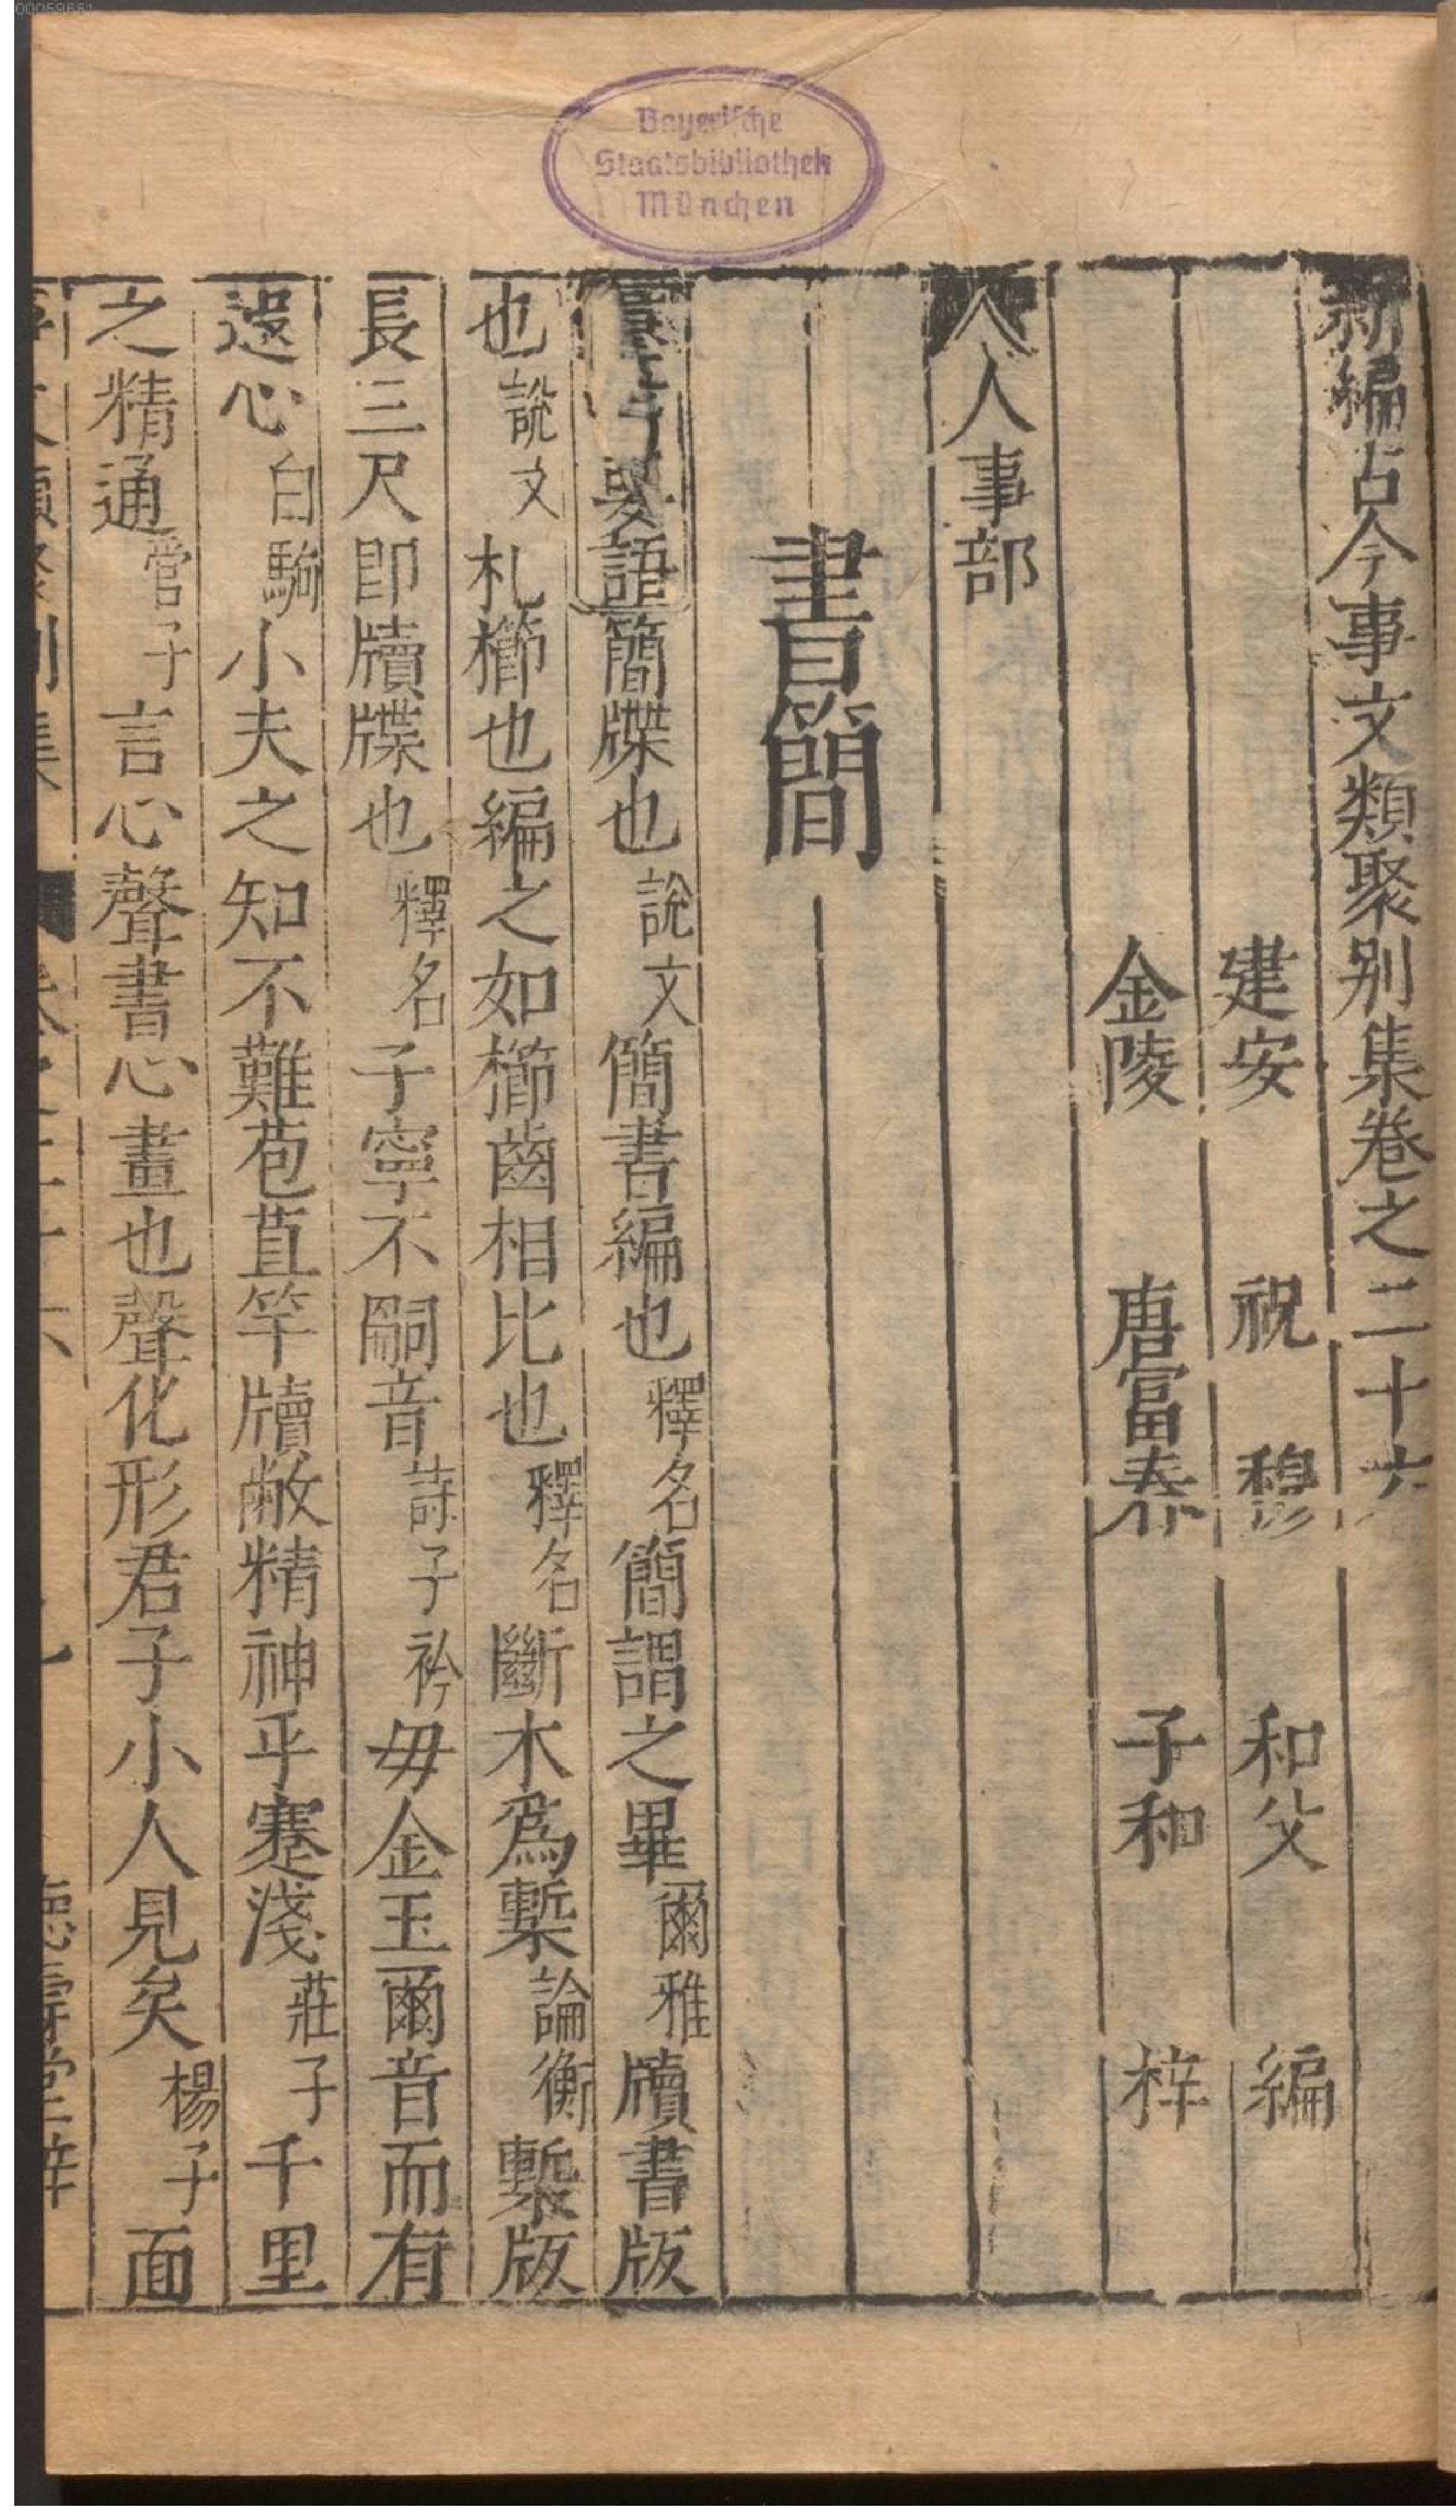 新編古今事文類聚别集卷之二十六
建安 祝穆 和父 編
金陵 唐富春 子和 梓
人事部
書簡
要語簡牒也説文簡書編也釋名簡謂之畢爾雅牘書版
也說文札櫛也編之如櫛齒相比也釋名斷木爲槧論衡槧版
長三尺即牘牒也釋名子寧不嗣音詩子衿毋金玉爾音而有
遐心白駒小夫之知不難苞苴竿牘敝精神乎蹇淺莊子千里
之精通管子言心聲書心畫也聲化形君子小人見矣楊子面
德壽堂梓
Bayerische
Staatsbibliothek
München
00059661